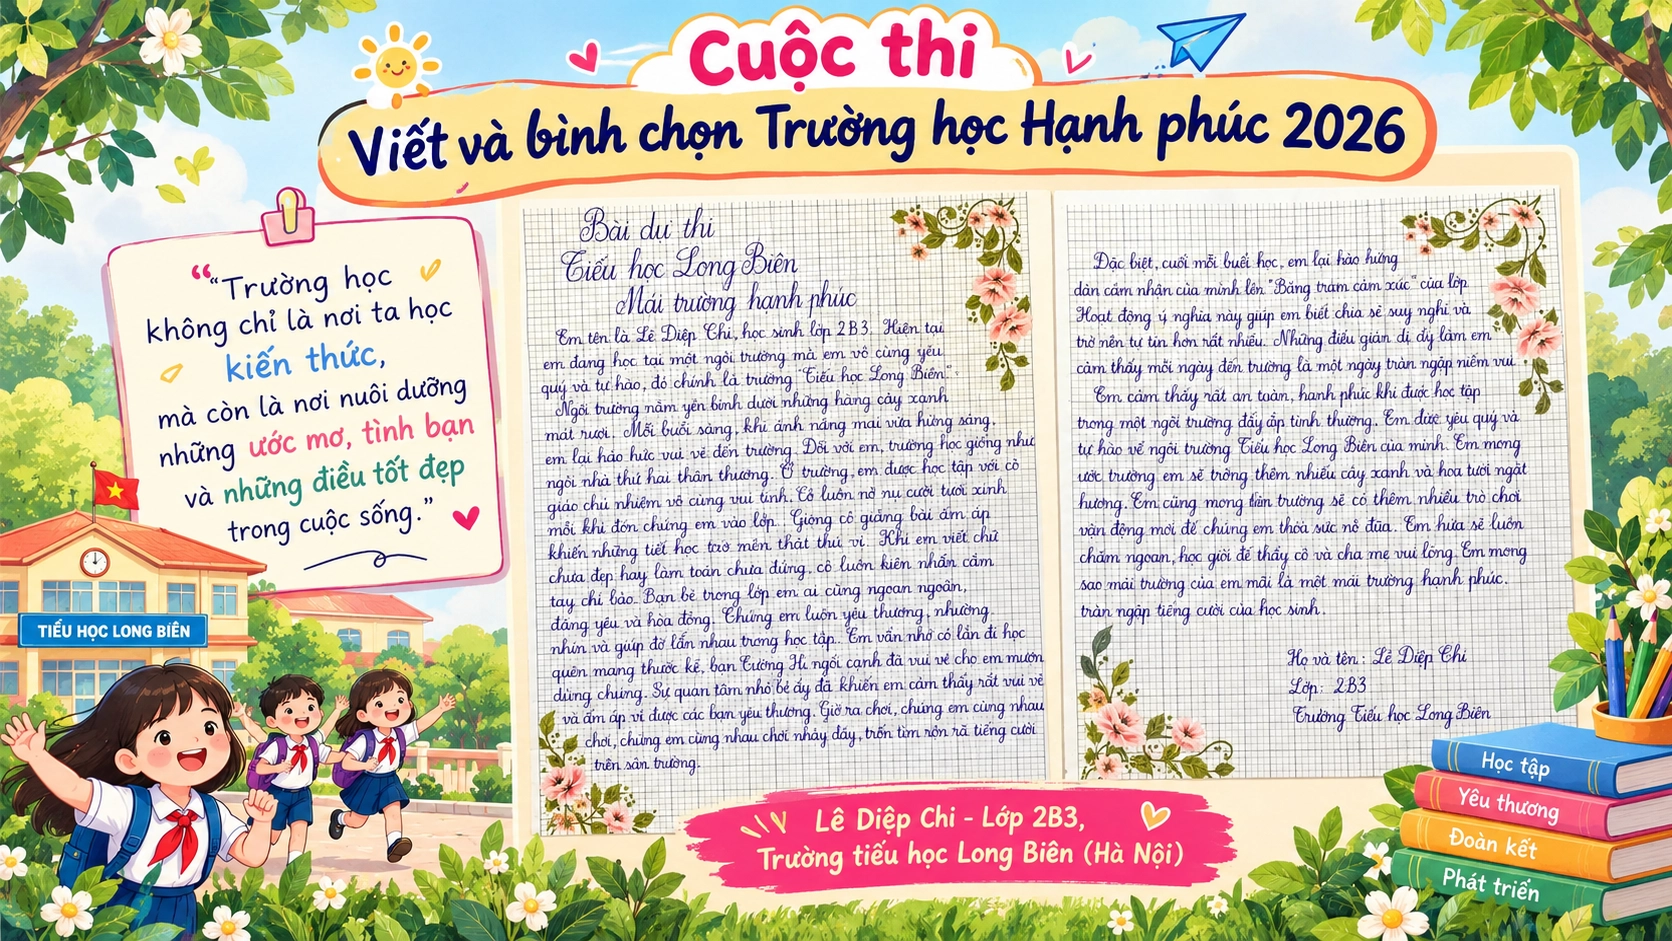 Cuộc thi
Viết và bình chọn Trường học Hạnh phúc 2026
““Trường học
không chỉ là nơi ta học
kiến thức,
mà còn là nơi nuôi dưỡng
những ước mơ, tình bạn
và những điều tốt đẹp
trong cuộc sống.”
TIỂU HỌC LONG BIÊN
Bài dự thi
Tiểu học Long Biên
Mái trường hạnh phúc
Em tên là Lê Diệp Chi, học sinh lớp 2B3. Hiện tại
em đang học tại một ngôi trường mà em vô cùng yêu
quý và tự hào, đó chính là trường "Tiểu học Long Biên".
Ngôi trường nằm yên bình dưới những hàng cây xanh
mát rượi. Mỗi buổi sáng, khi ánh nắng mai vừa hửng sáng,
em lại háo hức vui vẻ đến trường. Đối với em, trường học giống như
ngôi nhà thứ hai thân thương. Ở trường, em được học tập với cô
giáo chủ nhiệm vô cùng vui tính. Cô luôn nở nụ cười tươi xinh
mỗi khi đón chúng em vào lớp. Giọng cô giảng bài ấm áp
khiến những tiết học trở nên thật thú vị. Khi em viết chữ
chưa đẹp hay làm toán chưa đúng, cô luôn kiên nhẫn cầm
tay chỉ bảo. Bạn bè trong lớp em ai cũng ngoan ngoãn,
đáng yêu và hòa đồng. Chúng em luôn yêu thương, nhường
nhịn và giúp đỡ lẫn nhau trong học tập. Em vẫn nhớ có lần đi học
quên mang thước kẻ, bạn Tường Hi ngồi cạnh đã vui vẻ cho em mượn
dùng chung. Sự quan tâm nhỏ bé ấy đã khiến em cảm thấy rất vui vẻ
và ấm áp vì được các bạn yêu thương. Giờ ra chơi, chúng em cùng nhau
chơi, chúng em cùng nhau chơi nhảy dây, trốn tìm rộn rã tiếng cười
trên sân trường.
Đặc biệt, cuối mỗi buổi học, em lại hào hứng
dán cảm nhận của mình lên "Bảng trạm cảm xúc" của lớp
Hoạt động ý nghĩa này giúp em biết chia sẻ suy nghĩ và
trở nên tự tin hơn rất nhiều. Những điều giản dị ấy làm em
cảm thấy mỗi ngày đến trường là một ngày tràn ngập niềm vui.
Em cảm thấy rất an toàn, hạnh phúc khi được học tập
trong một ngôi trường đầy ắp tình thương. Em được yêu quý và
tự hào về ngôi trường Tiểu học Long Biên của mình. Em mong
ước trường em sẽ trồng thêm nhiều cây xanh và hoa tươi ngát
hương. Em cũng mong trường sẽ có thêm nhiều trò chơi
vận động mới để chúng em thỏa sức nô đùa. Em hứa sẽ luôn
chăm ngoan, học giỏi để thầy cô và cha mẹ vui lòng. Em mong
sao mái trường của em mãi là một mái trường hạnh phúc.
tràn ngập tiếng cười của học sinh.
Họ và tên: Lê Diệp Chi
Lớp: 2B3
Trường Tiểu học Long Biên
Lê Diệp Chi - Lớp 2B3,
Trường tiểu học Long Biên (Hà Nội)
Học tập
Yêu thương
Đoàn kết
Phát triển